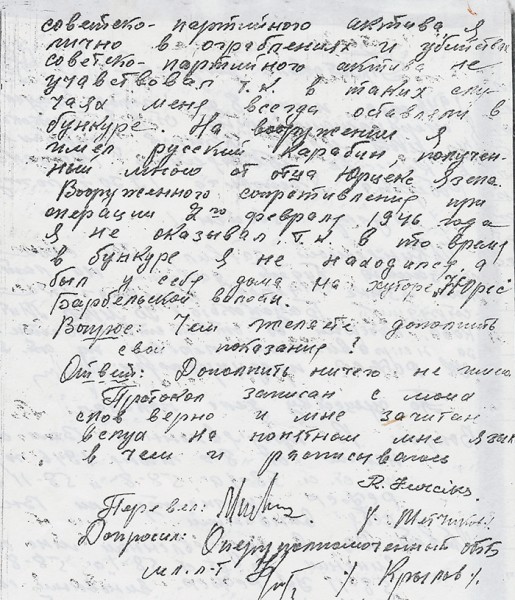 советско-партийного актива, я
лично в ограблениях и убийствах
советско-партийного актива не
учавствовал т.к. в таких слу-
чаях меня всегда оставляли в
бункере. На вооружении я
имел русский карабин, получен-
ный мною от отца Юрцекс Язепа.
Вооруженного сопротивления при
операции 2го февраля 1946 года
я не оказывал, т.к. в то время
в бункере я не находился, а
был у себя дома на хуторе „Юрес"
Барбельской волости.
Вопрос: Чем желаете дополнить
свои показания?
Ответ: Дополнить ничего не имею
Протокол записан с моих
слов верно и мне зачитан
вслух на понятном мне языке
в чем и расписываюсь
Перевел:
Допросил: Оперуполномоченный ОББ
мл. л-т / Крылов /.